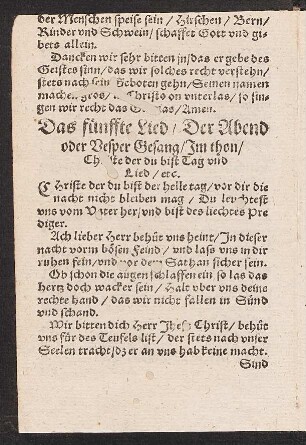 der Menschen speise sein / Hirschen / Bern /
Rinder vnd Schwein / schaffet Gott vnd gi-
bets allein.
Dancken wir sehr bitten jn / das er gebe des
Geistes sinn / das wir solches recht verstehn /
stets nach sein Geboten gehn / Seinen namen
machen gros / Christo on vnterlas / so sin-
gen wir recht das / Amen.
Das fünffte Lied / Der Abend
oder Vesper Gesang / Jm thon /
Christe der du bist Tag vnd
Lied / etc.
Christe der du bist der helle tag / vor dir die
nacht nicht bleiben mag / Du leuchtest
vns vom Vater her / vnd bist des liechtes Pre
diger.
Ach lieber Herr behüt vns heint / Jn dieser
nacht vorm bösen Feind / vnd lass vns in dir
ruhen fein / vnd vor dem Sathan sicher sein.
Ob schon die augen schlaffen ein so las das
hertz doch wacker sein / Halt vber vns deine
rechte hand / das wir nicht fallen in Sünd
vnd schand.
Wir bitten dich Herr Jhesu Christ / behüt
vns für des Teufels list / der stets nach vnser
Seelen tracht / dz er an vns hab keine macht.
Sind